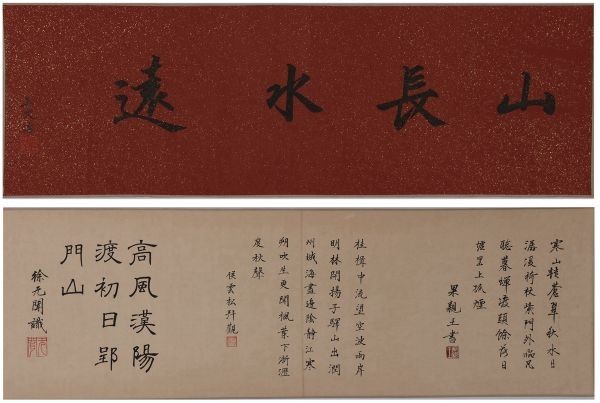 山長水遠
寒山轉蒼翠秋水日
潺湲倚杖柴門外臨風
聽暮蟬渡頭餘落日
墟里上孤煙
果親王書
桂楫中流望空波兩岸
明林開揚子驛山出潤
州城海盡邊陰靜江寒
朔吹生更聞楓葉下淅瀝
度秋聲
侯雲松拜觀
高風漢陽
渡初日郢
門山
徐元聞識